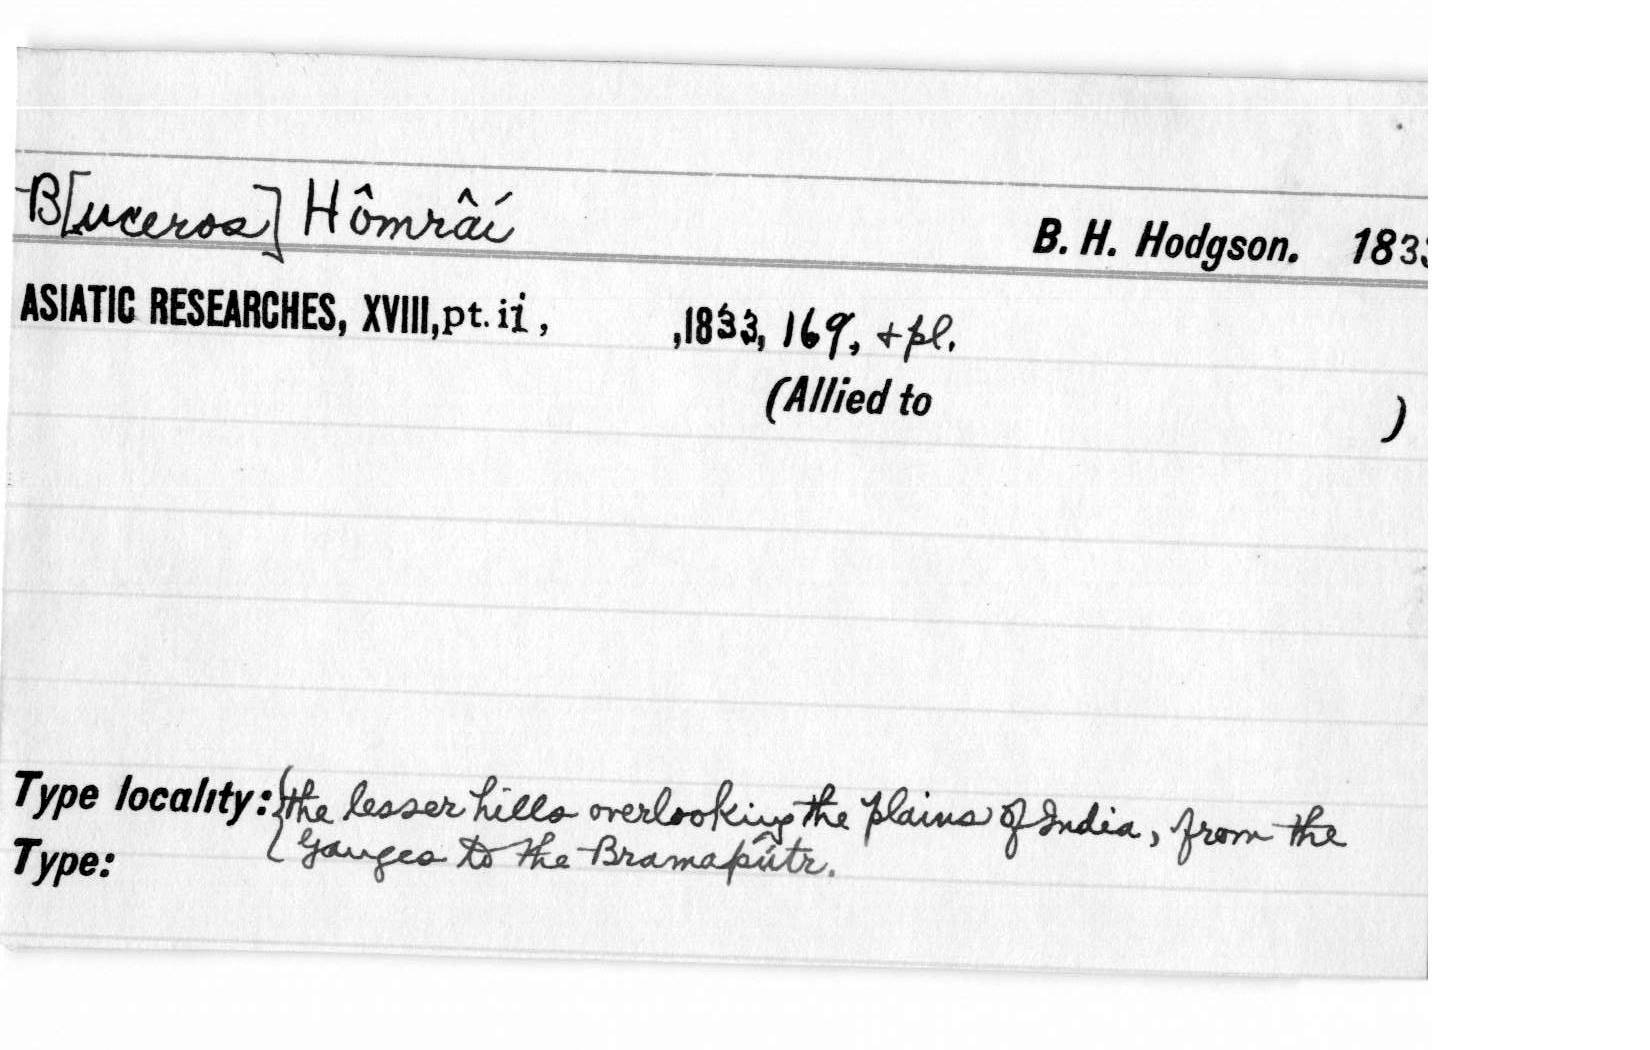 B[uceros] Hômrâí
B. H. Hodgson. 1833
ASIATIC RESEARCHES, XVIII, pt. ii, ,1833, 169, + pl.
(Allied to )
Type locality: {the lesser hills overlooking the plains of India, from the
Ganges to the Bramapûtr.
Type: